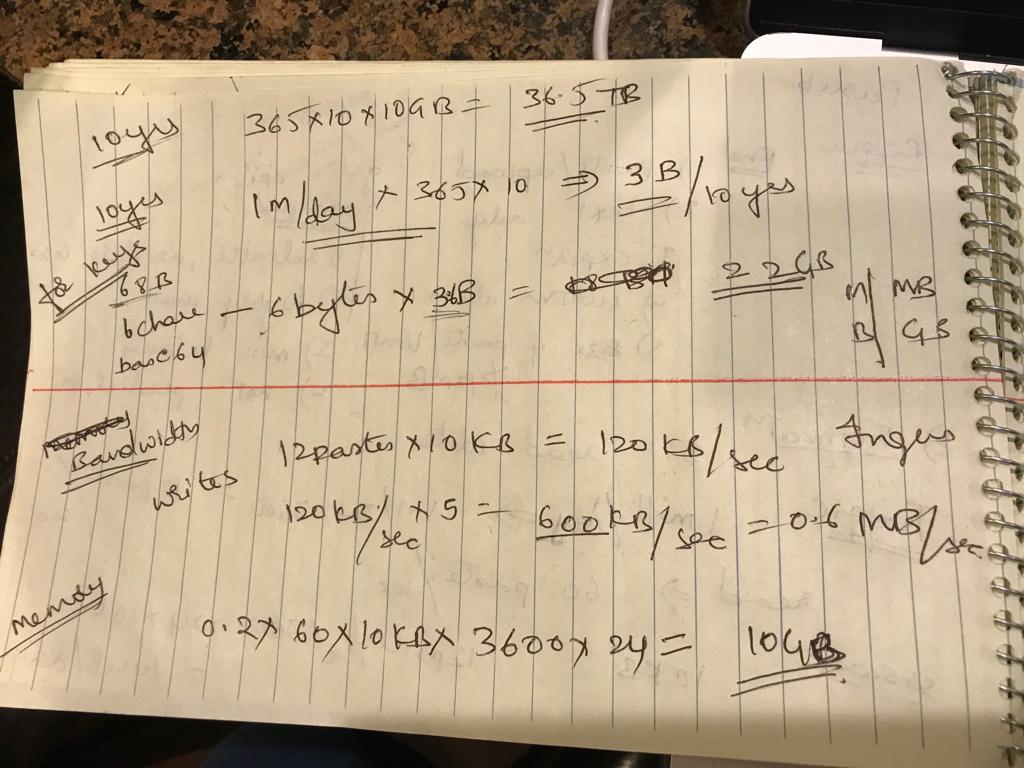 10yrs 365×10×10GB = 36.5 TB
10yrs 1m/day × 365×10 ⇒ 3B/10 yrs
for keys
68B
6 chars – 6 bytes × 3.6B = 22GB M/MB
base64 B/GB
Bandwidth 12pastes×10 KB = 120 KB/sec Ingess
writes
120KB/sec × 5 = 600 KB/sec = 0.6 MB/sec
memory
0.2× 60×10KB× 3600× 24 = 10GB